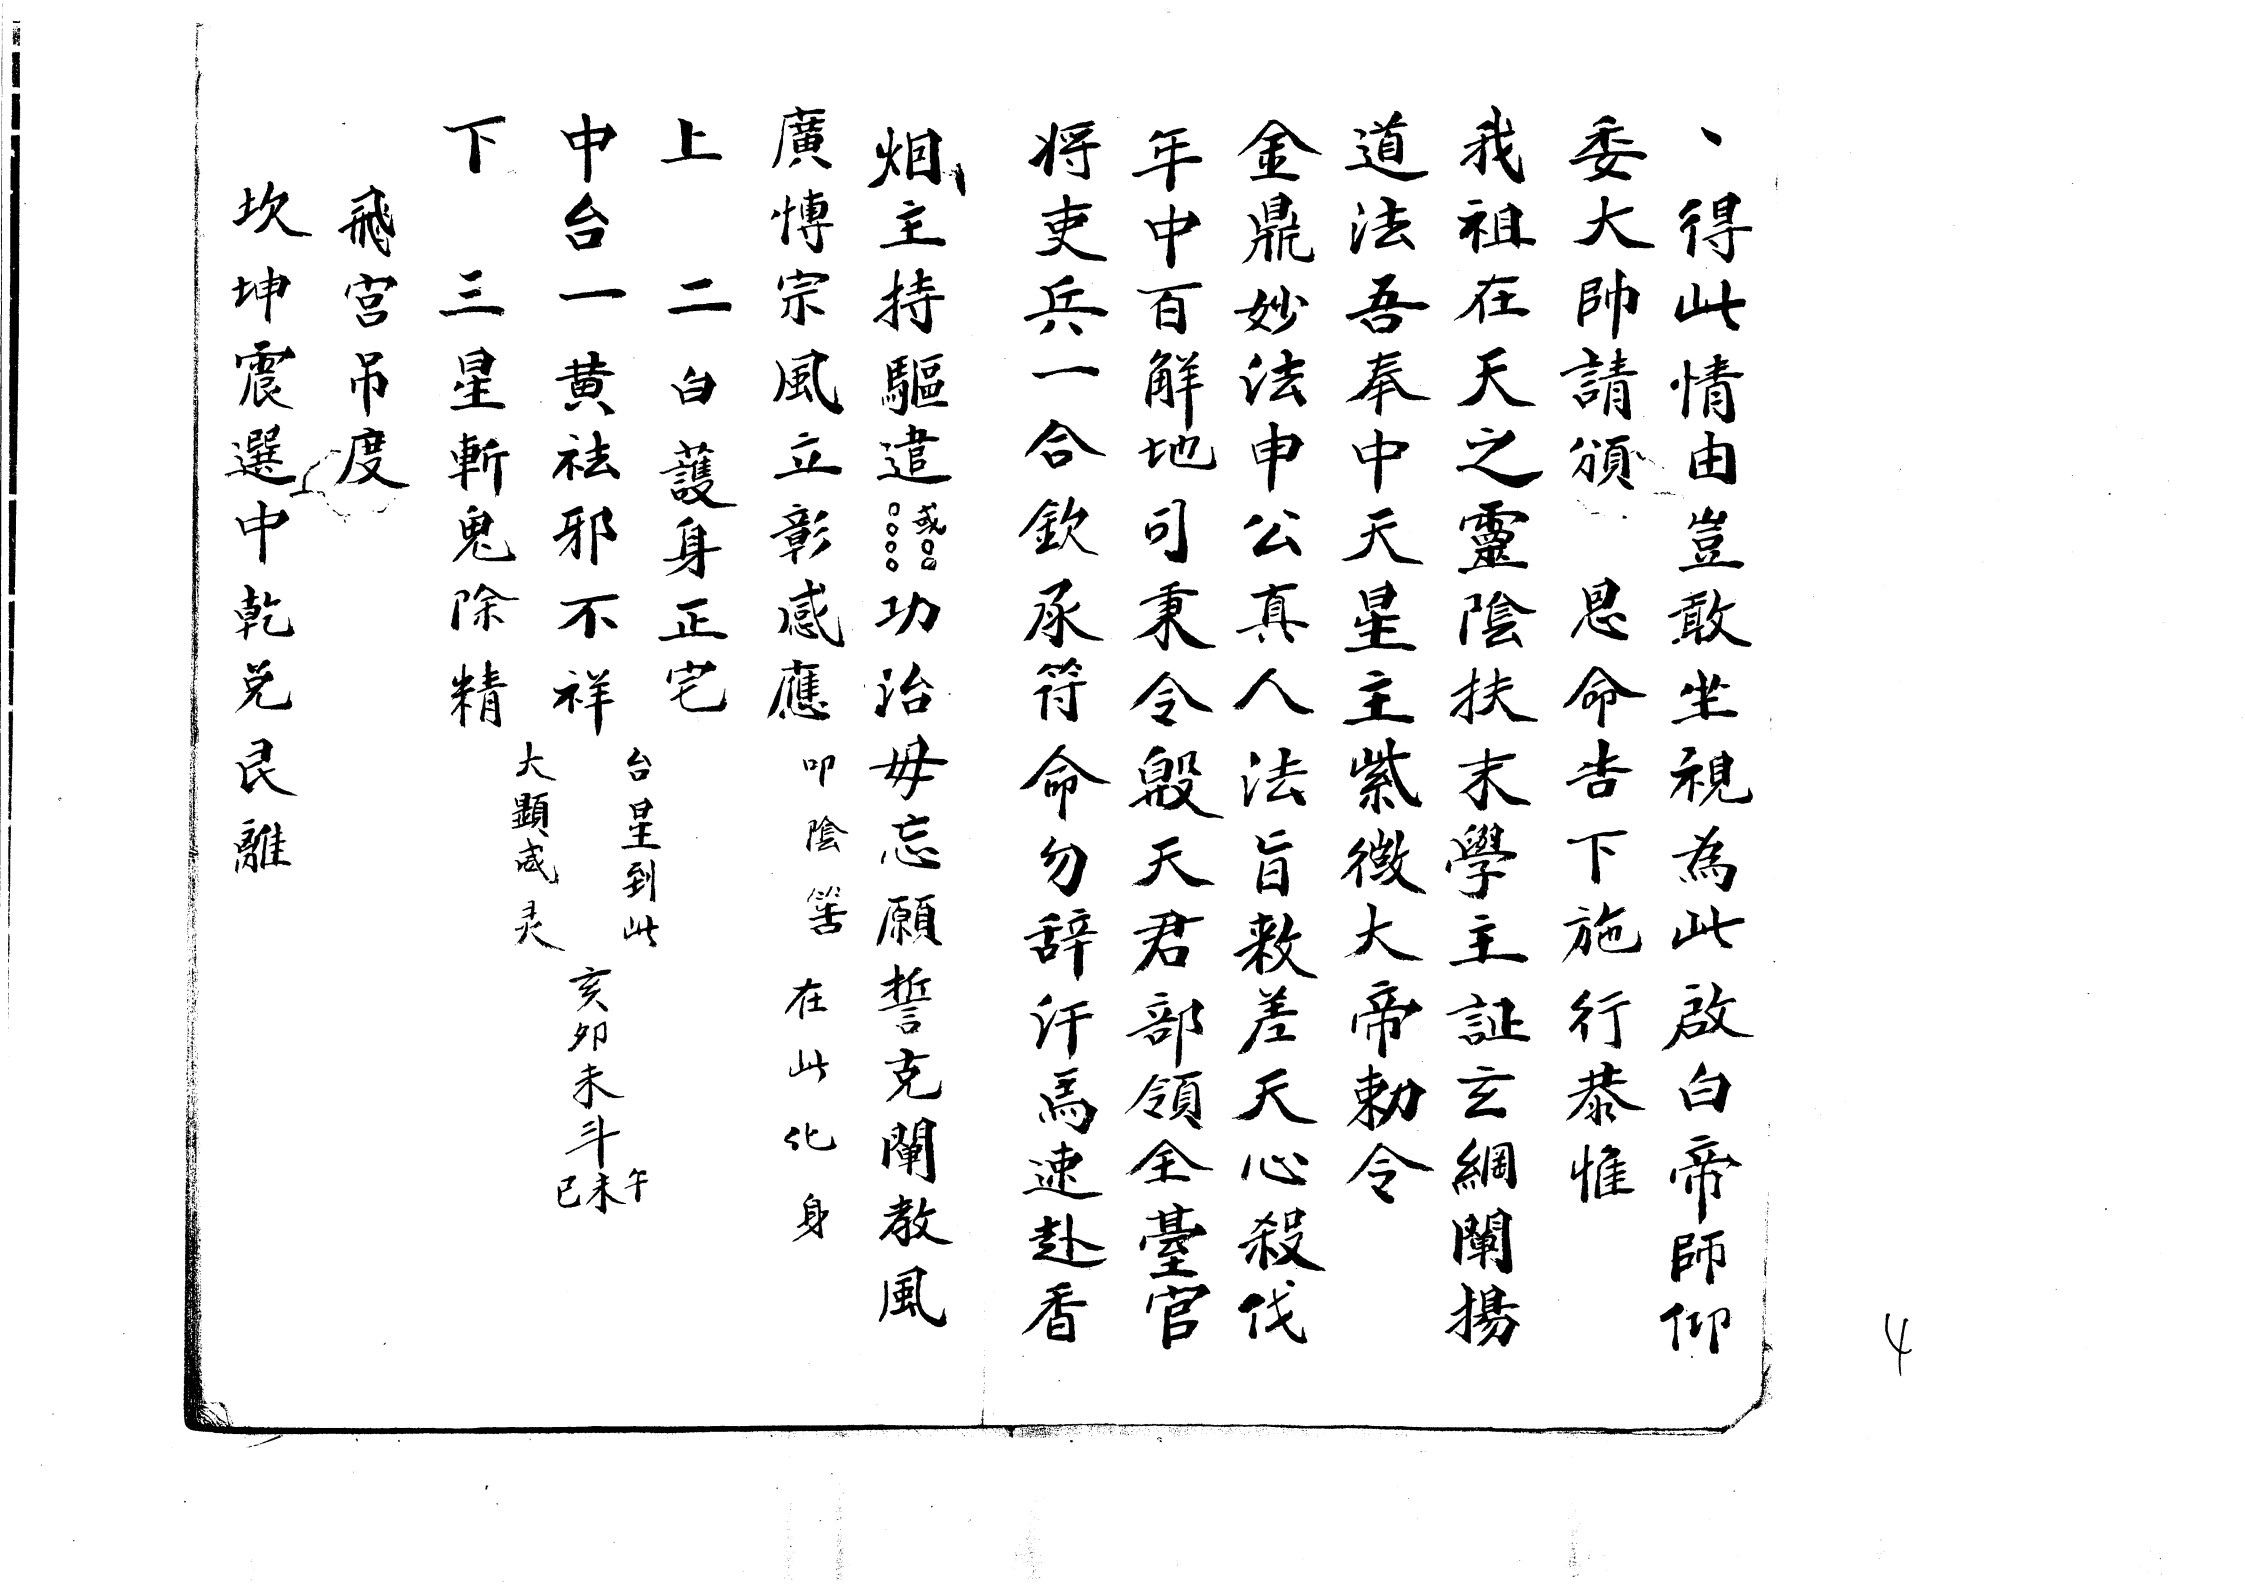 、得此情由豈敢坐視為此啟白帝師仰
委大帥請頒 恩命告下施行恭惟
我祖在天之靈陰扶末學主証玄綱闡揚
道法吾奉中天星主紫微大帝勅令
金鼎妙法申公真人法旨敕差天心殺伐
年中百解地司秉令殷天君部領全臺官
将吏兵一合欽承符命勿辞汗馬速赴香
烟主持驅遣或〇〇〇〇〇〇功治毋忘願誓克闡教風
廣愽宗風立彰感應 叩陰筶在此化身
上 二白護身正宅
中台一黄祛邪不祥 台星到此
下 三星斬鬼除精 大顯威灵
亥卯未斗午未巳
飛宮吊度
坎坤震選中乾兌艮離
4